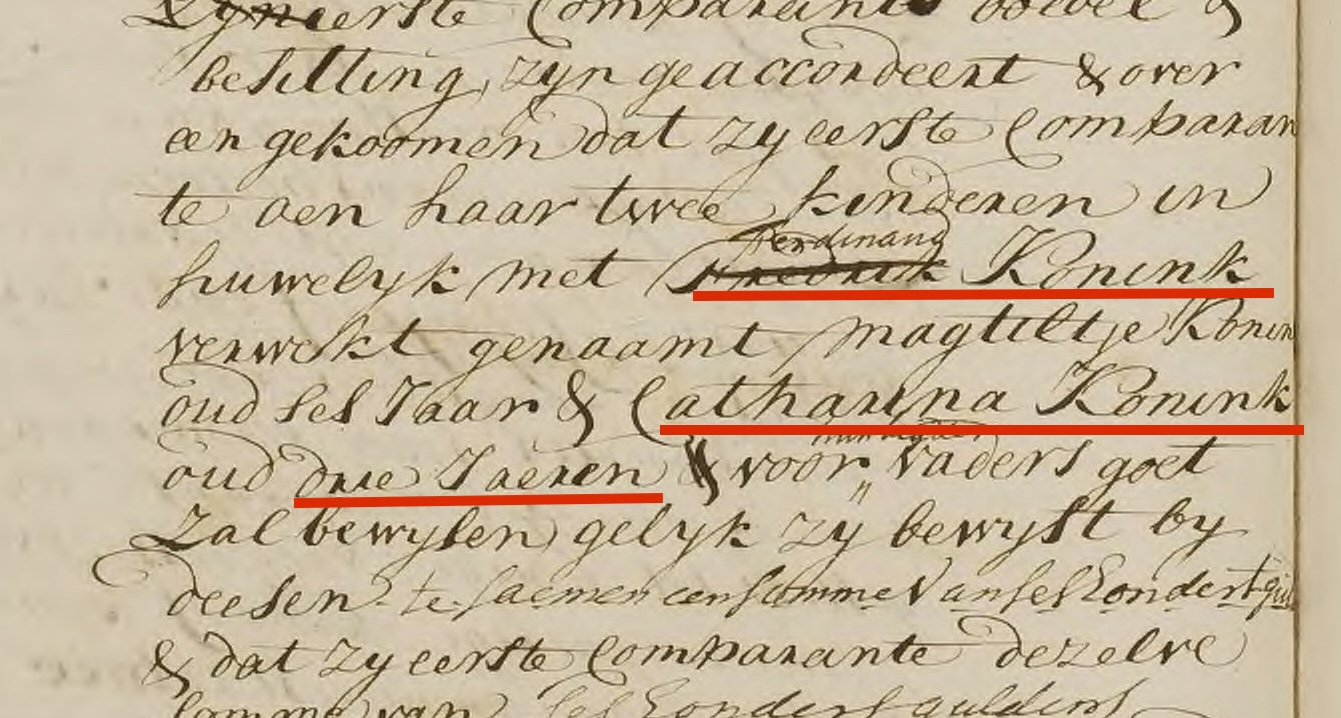 Zyn eerste Comparants boedel &
besitting, zyn geaccordeert & over
een gekoomen dat zy eerste Comparan
te aen haar twee kinderen in
Ferdinand
huwelyk met Fredrik Konink
verwekt genaamt Magtiltje Konin
oud ses Jaar & Catharina Konink
oud drie Jaeren & voor vaders goet
zal bewysen gelyk zy bewyst by
deesen te saemen een somme van ses Hondert gul
& dat zy eerste Comparante dezelve
somme van ses Hondert guldens